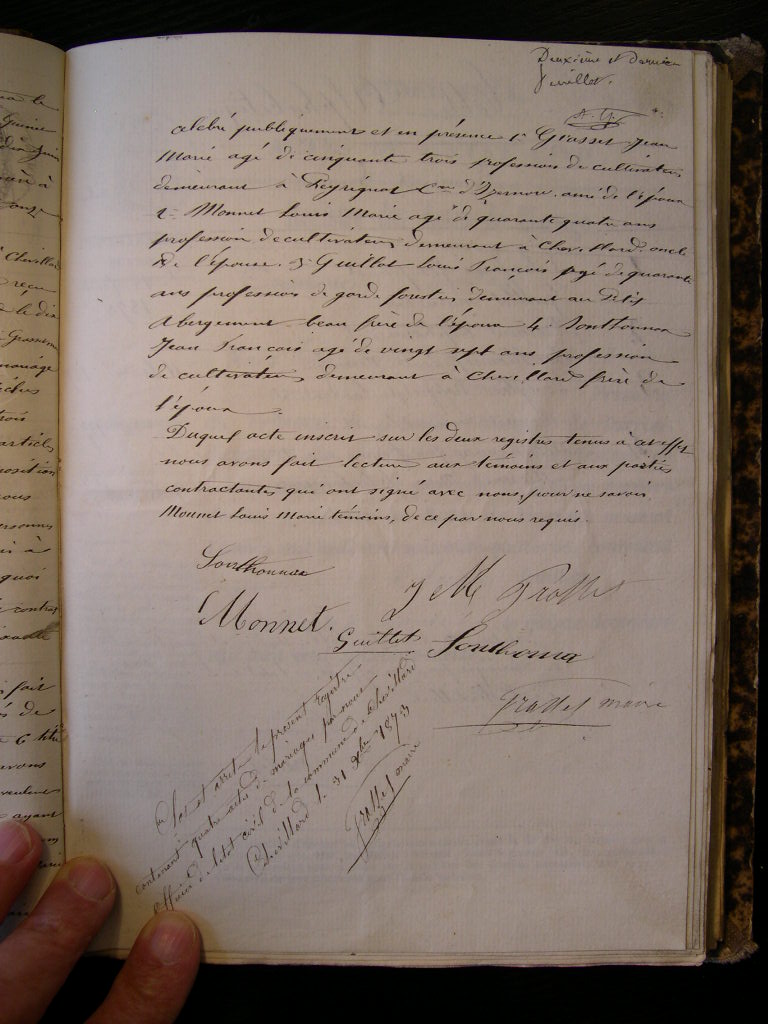 Deuxième et dernier
feuillet.
A. G.
célébré publiquement et en présence 1° Grasset Jean
Marie agé de cinquante trois profession de cultivateur
demeurant à Peyriguat Cne d'Izernore ami de l'époux
2° Monnet Louis Marie agé de quarante quatre ans
profession de cultivateur demeurant à Chevillard oncle
de l'épouse. 3° Guillot Louis François agé de quarante
ans profession de garde forestier demeurant au Petit
Abergement beau frère de l'époux 4° Sonthonnax
Jean François agé de vingt sept ans profession
de cultivateur demeurant à Chevillard frère de
l'époux
Duquel acte inscrit sur les deux registres tenus à cet effet
nous avons fait lecture aux témoins et aux parties
contractantes qui ont signé avec nous, pour ne savoir
Monnet Louis Marie témoins, de ce par nous requis.
Sonthonnax
J M Grasset
Monnet.
Guillot Sonthonnax
Grasset maire
Clos et arrêté le présent registre
contenant quatre actes de mariages par nous
officier de l'état civil de la commune de Chevillard
Chevillard le 31 Xbre 1873
Grasset maire